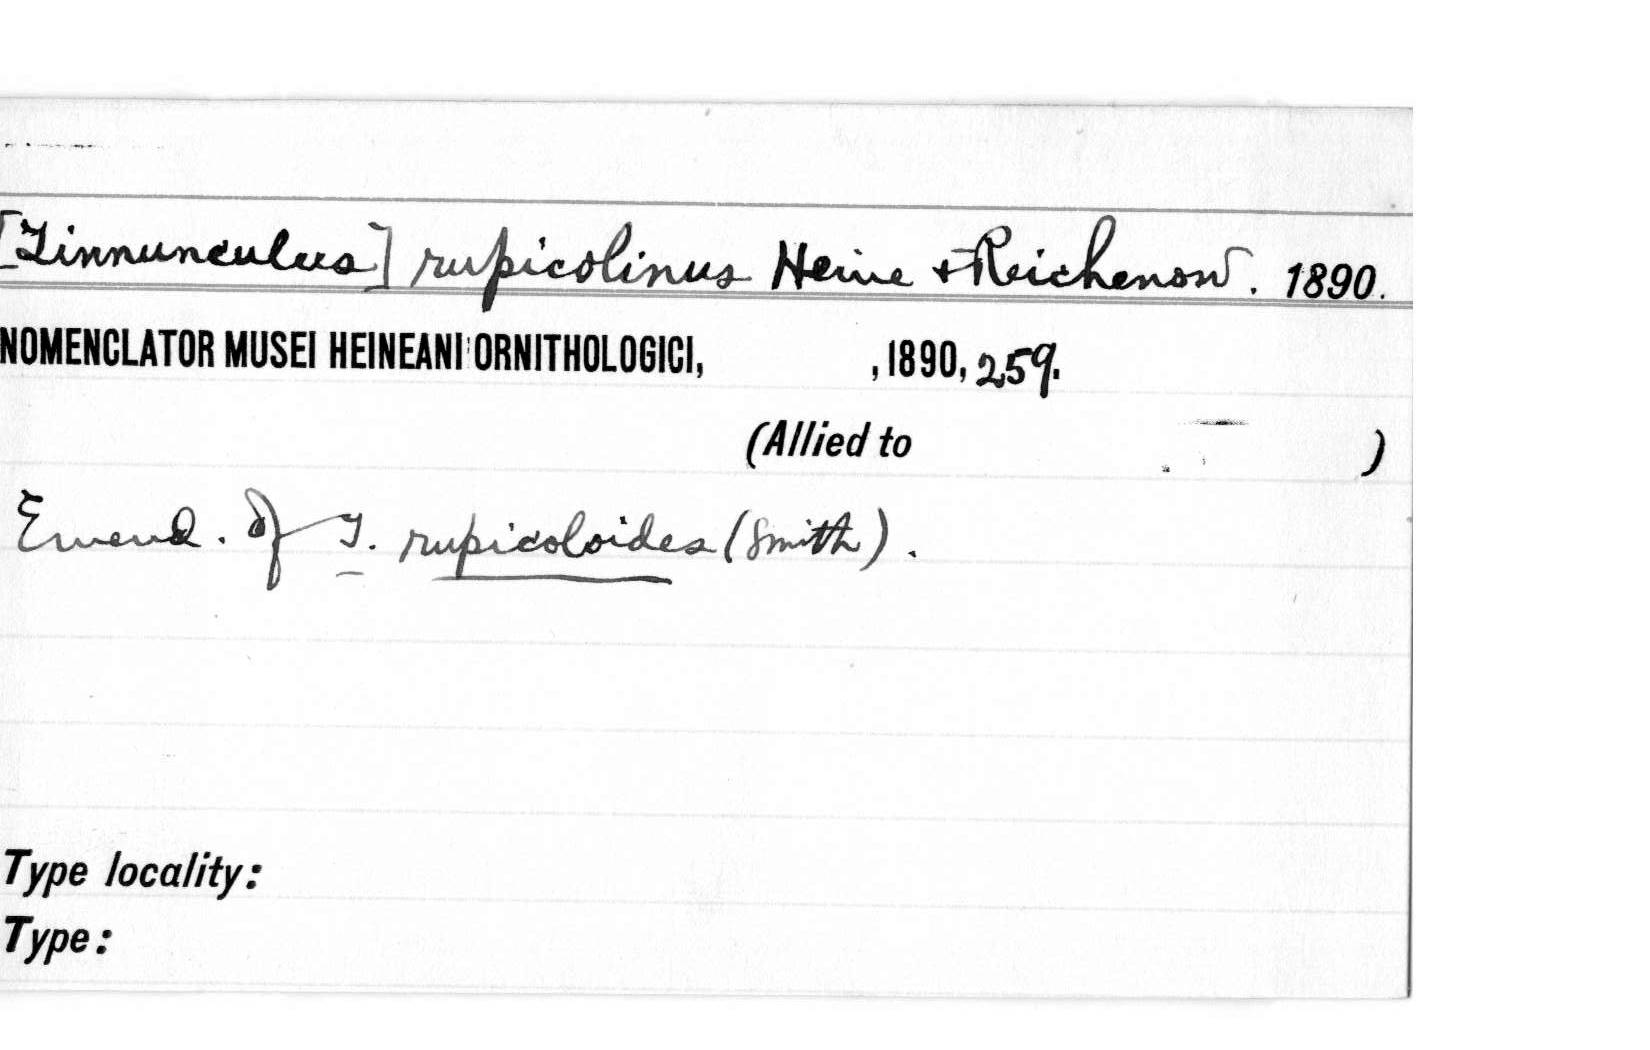 [Tinnunculus] rupicolinus Heine + Reichenow. 1890.
NOMENCLATOR MUSEI HEINEANI ORNITHOLOGICI, , 1890, 259.
(Allied to )
Emend. of T. rupicoloides (Smith).
Type locality:
Type: